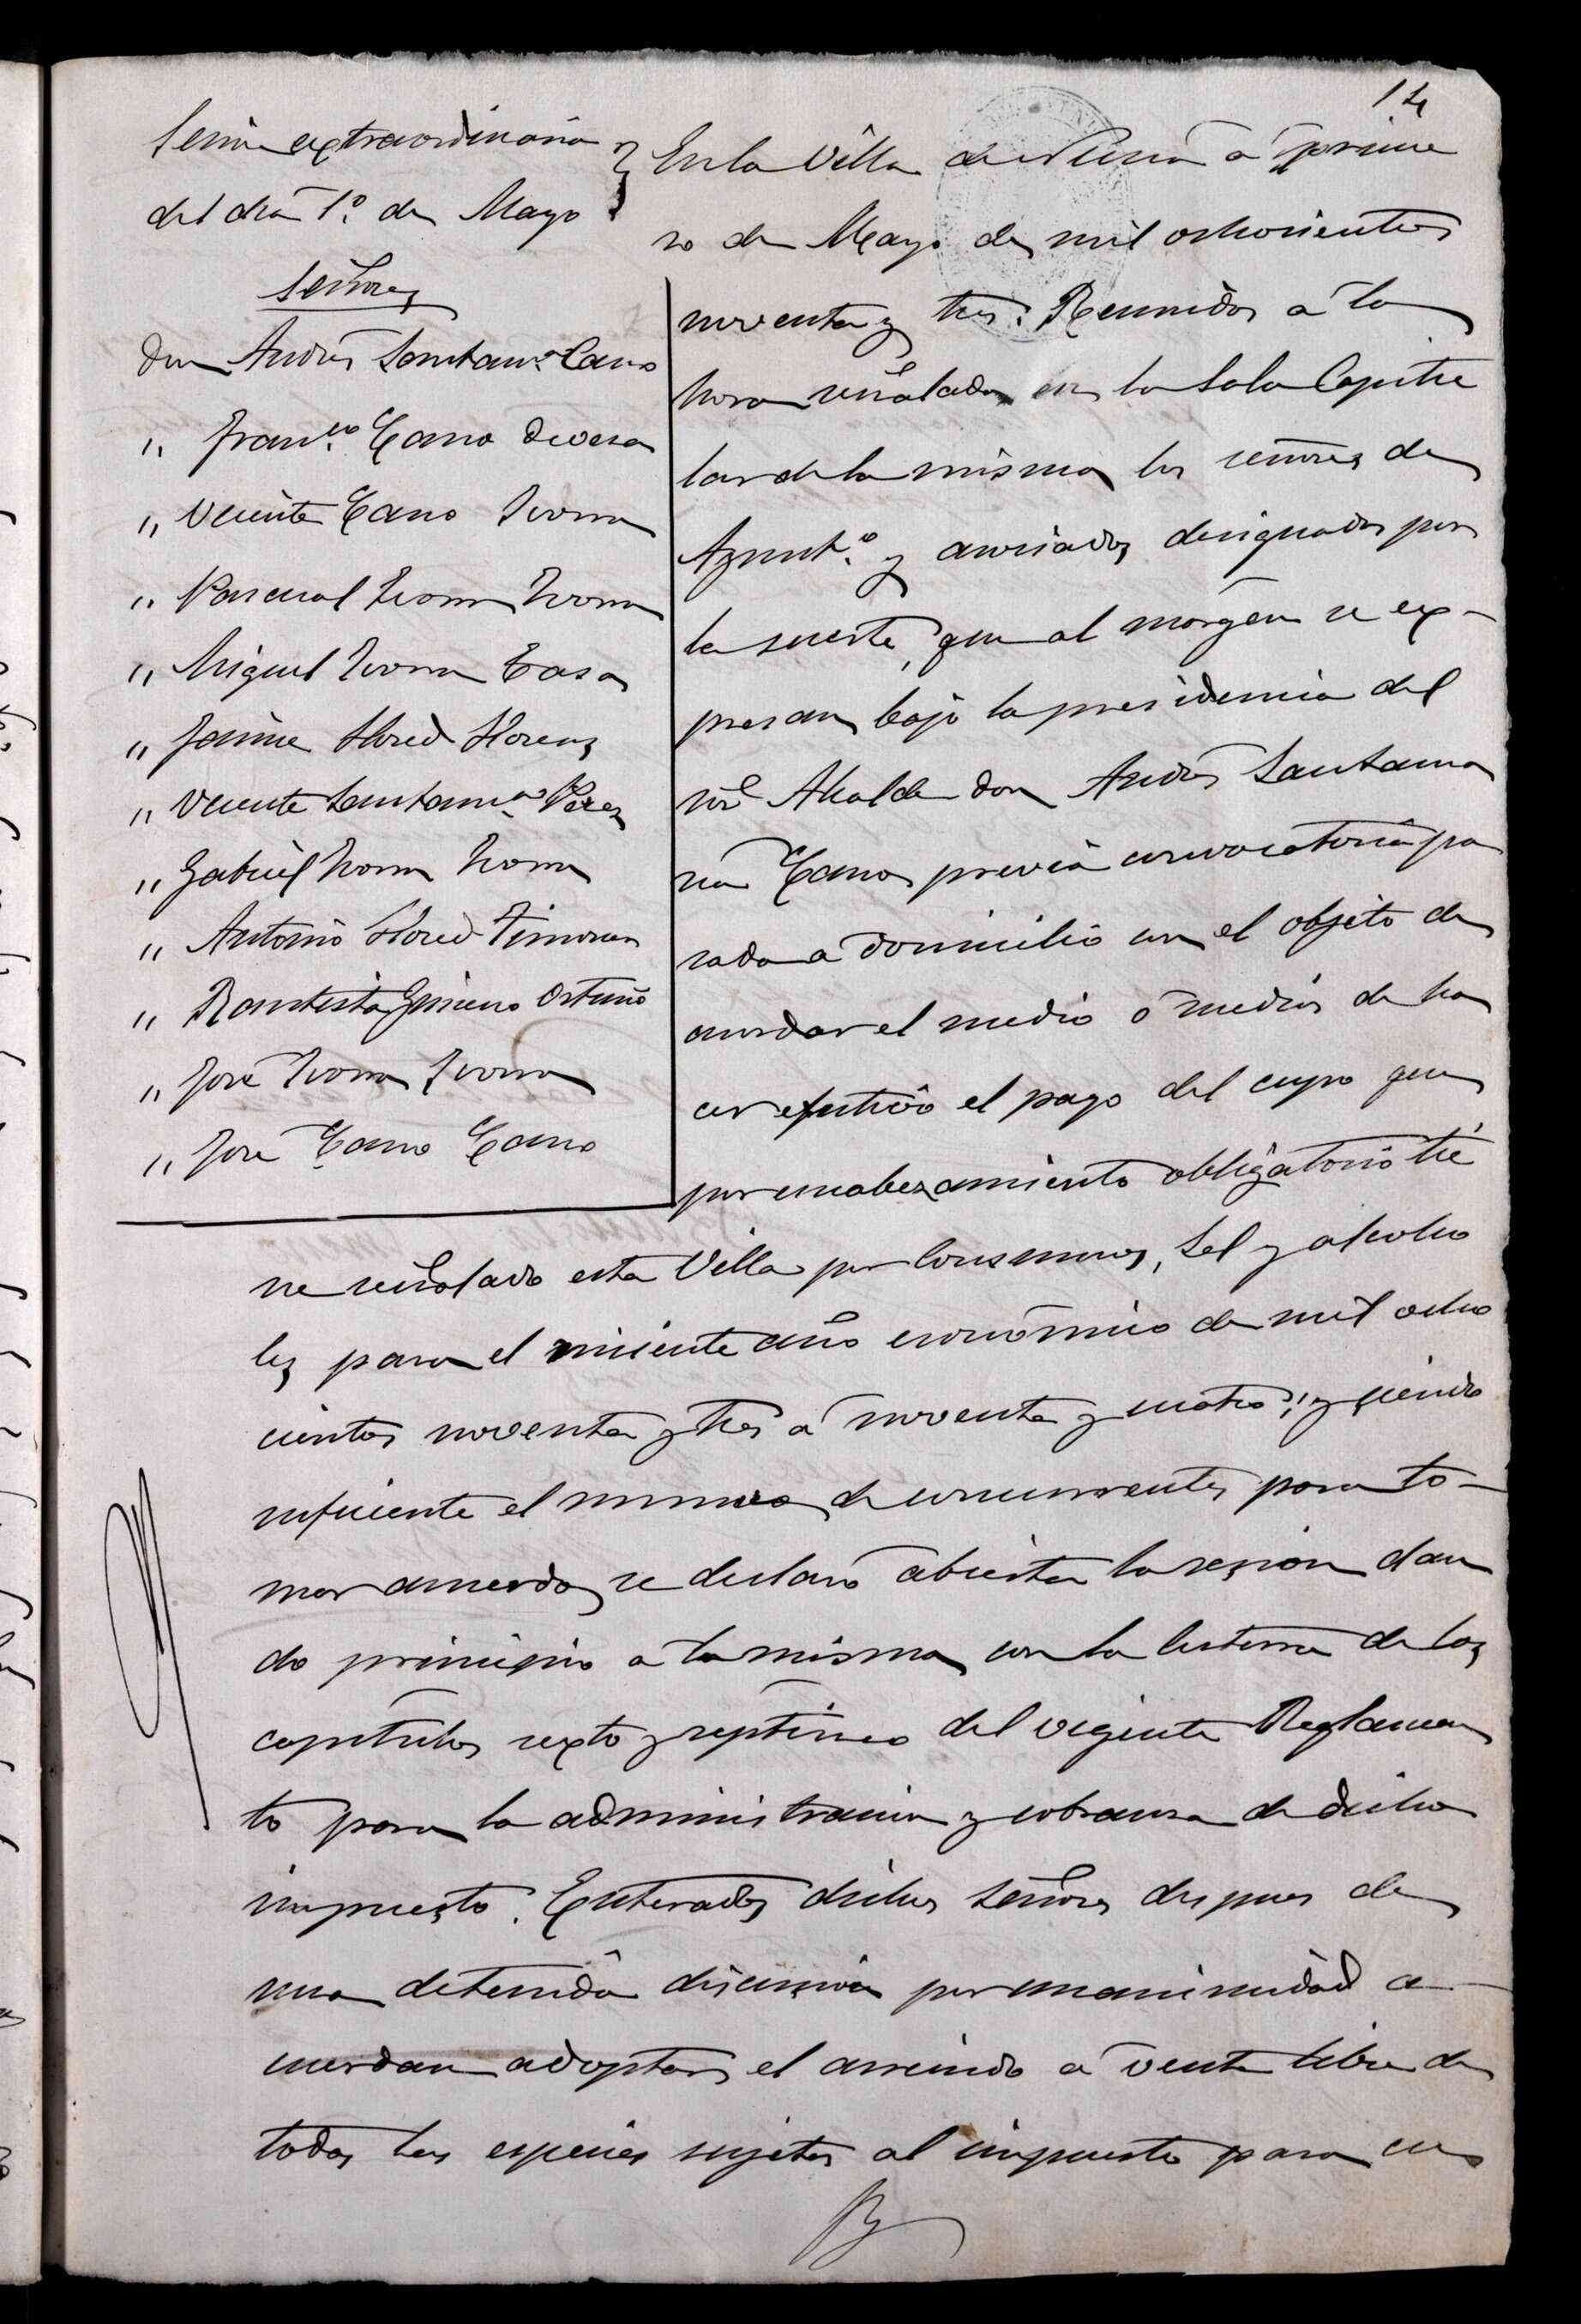 14
Sesión extraordinaria
del dia 1º de Mayo
Señores
Don Andres Santamª Cano
" Franco Cano Devesa
" Vicente Cano Ivorra
" Pascual Ivorra Ivorra
" Miguel Ivorra Casa
" Jaime Llored Llorens
" Vicente Santamª Perez
" Gabriel Ivorra Ivorra
" Antonio Llored Timoner
" Bautista Gimeno Ortuño
" José Ivorra Ivorra
" José Cano Cano
En la Villa de á prime
ro de Mayo de mil ochocientos
noventa y tres. Reunidos a la
hora señalada en la Sala Capitu
lar de la misma los señores de
Ayuntº y asociados designados por
la suerte, que al márgen se ex-
presan bajo la presidencia del
Sor Alcalde don Andrés Santama
ria Cano previa convocatoria pa
sada a domicilio con el objeto de
acordar el medio ó medios de ha
cer efectivo el pago del cupo que
por encabezamiento obligatorio tie
ne señalado esta Villa por Consumos, Sal y alcoho
les para el viniente año económico de mil ocho
cientos noventa y tres á noventa y cuatro; y siendo
suficiente el numero de concurrentes para to-
mar acuerdo, se declaró abierta la sesion dan
do principio a la misma con la lectura de los
capitulos sexto y septimo del vigente Reglamen
to para la administracion y cobranza de dicho
impuesto. Enterados dichos Señores despues de
una detenida discusion por unanimidad a-
cuerdan adoptar el arriendo a venta libre de
todas las especies sujetas al impuesto para cu